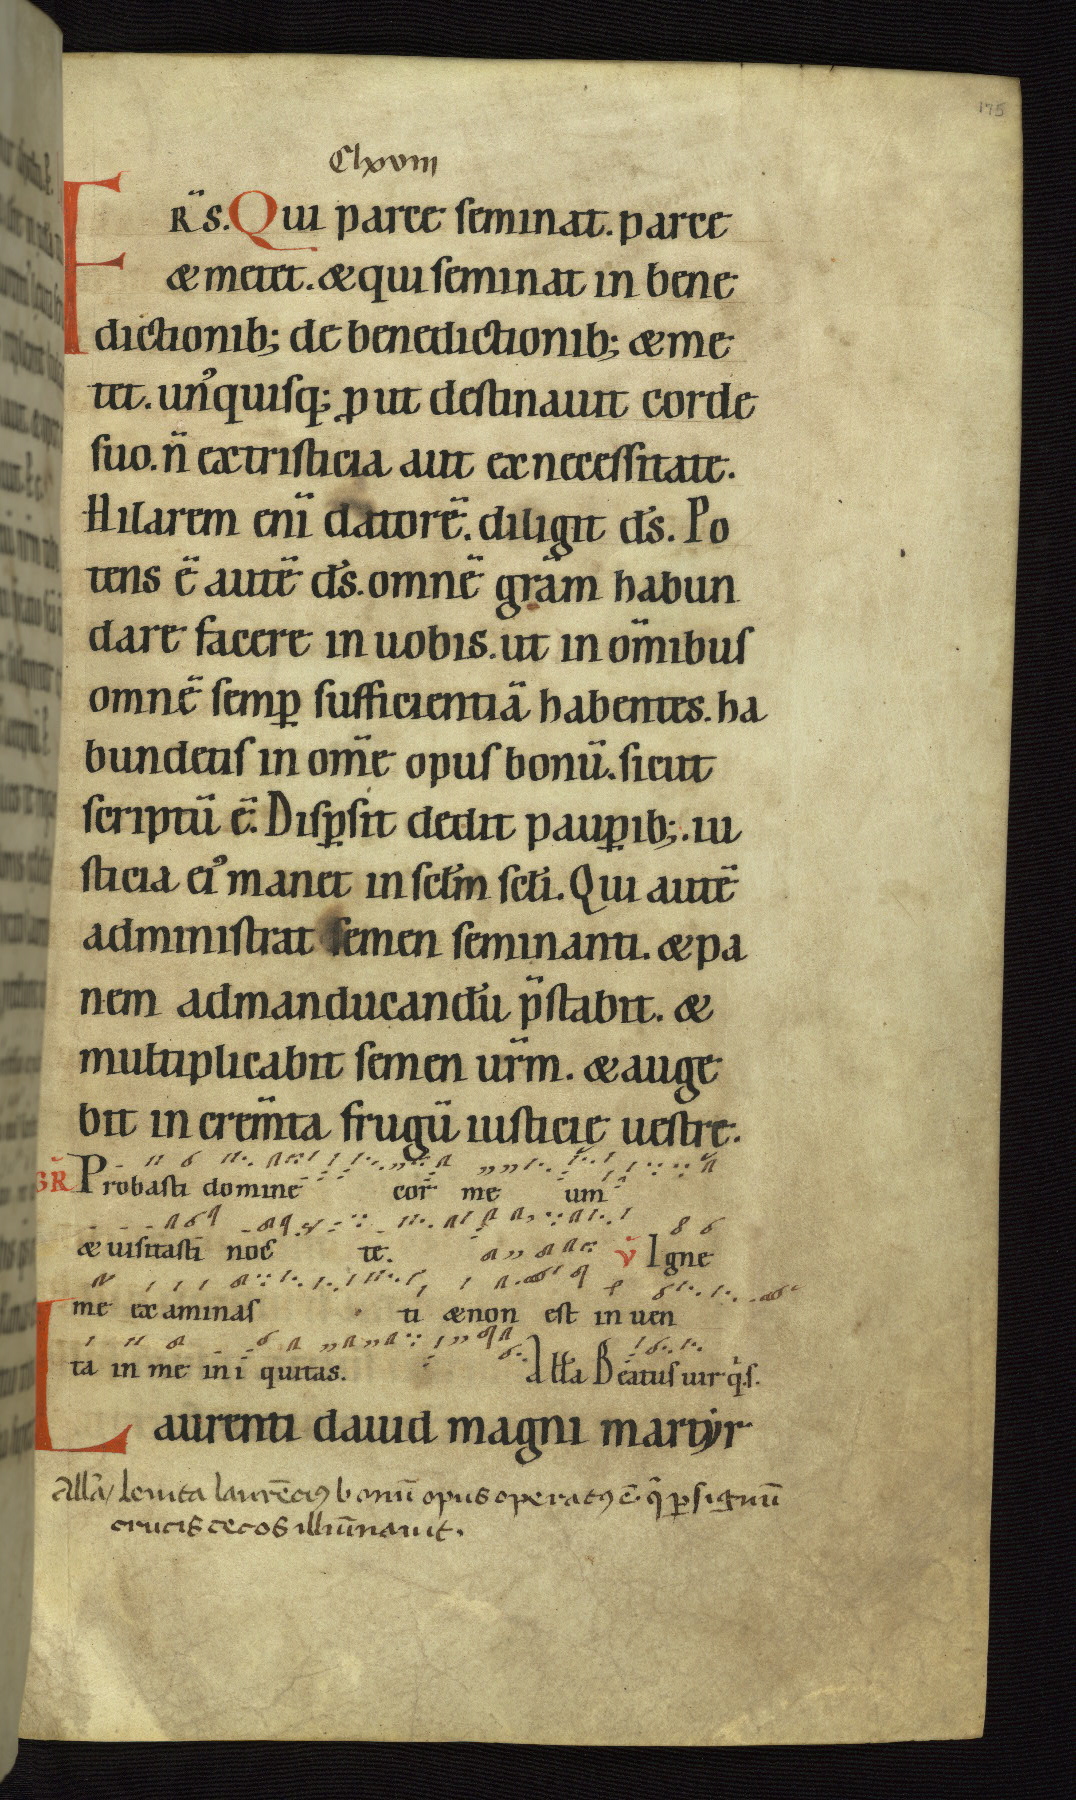 175
Clxviii
FRS. Qui parce seminat. parce
& metet. & qui seminat in bene
dictionib; de benedictionib; & me
tet. un᾽quisq; ꝓut destinauit corde
suo. n̄ ex tristicia aut ex necessitate.
Hilarem enī datorē. diligit ds̄. Po
tens ē autē ds̄. omnē grām habun
dare facere in uobis. ut in om̄ibus
omnē semꝑ sufficientiā habentes. ha
bundetis in om̄e opus bonū. sicut
scriptū ē. Disꝑsit dedit pauꝑib;. iu
sticia ei᾽ manet in sclm̄ scli̅. Qui autē
administrat semen seminanti. & pa
nem ad manducandū p̄stabit. &
multiplicabit semen ur̄m. & auge
bit in crem̄ta frugū iusticię uestre.
GR̄ Probasti domine cor me um
& uisitasti noc te. v̄ Igne
me ex aminas ti & non est in uen
ta in me in i quitas. All̄a Beatus uir q̄.s.
Laurenti dauid magni martyr
all̄a leuita laurēci᾽ bonū opus operat᾽ ē. q̄ ꝑ signū
crucis cecos illūnauit.